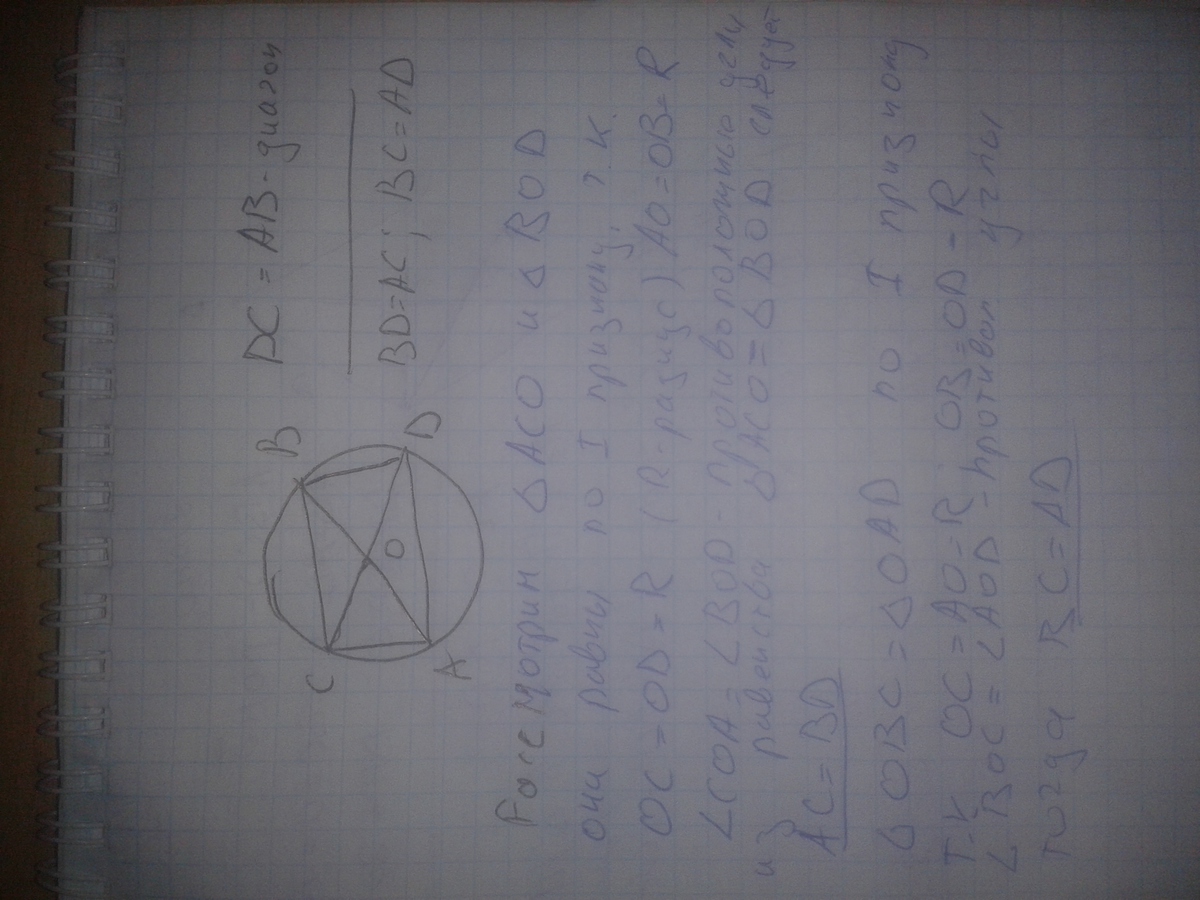 DC = AB - диагон
BD = AC; BC = AD
B
D
C
A
O
Рассмотрим Δ ACO и Δ BOD
они равны по I признаку, т.к.
OC = OD = R (R - радиус) AO = OB = R
∠COA = ∠BOD - противоположные углы
из равенства Δ ACO = Δ BOD следует
AC = BD
Δ OBC = Δ OAD по I признаку
Т.к OC = AO = R; OB = OD - R
∠ BOC = ∠ AOD - противоп углы
тогда BC = AD